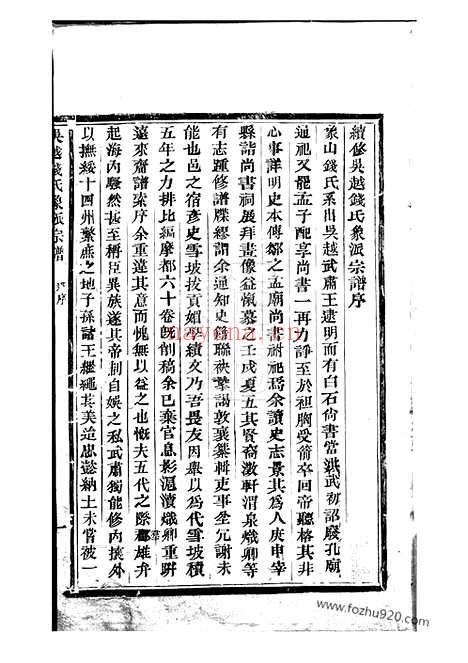 續修吳越錢氏象派宗譜序
象山錢氏系出吳越武肅王逮明而有白石尚書當洪武初詔廢孔廟
通祀又罷孟子配享尚書一再力諍至於袒胸受箭卒回帝聽格其非
心事詳明史本傳鄒之孟廟尚書祔祀焉余讀史志景其為人庚申宰
縣詣尚書祠展拜畫像益懷慕之壬戌夏五其賢裔澂軒渭泉熾卿等
有志踵修譜牒繆謂余通知史籍聯袂摯謁敦襄纂輯吏事坌冗謝未
能也邑之宿彥史雪坡拔貢媚於績文乃吾畏友因舉以為代雪坡積
五年之力排比編摩都六十卷旣創稿余已棄官息影滬瀆熾卿重趼
遠來齋譜索序余重違其意而愧無以益之也慨夫五代之際羣雄弁
起海內騷然甚至稱臣異族遂其帝制自娛之私武肅獨能修內攘外
以撫綏十四州蒸庶之地子孫諸王繼繩其美迨忠懿納土未嘗被一
吳越錢氏象派宗譜
序
一
nayona.cn
www.fozhu920.com